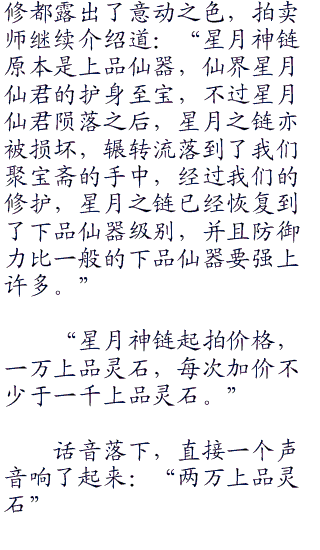 修都露出了意动之色，拍卖
师继续介绍道：“星月神链
原本是上品仙器，仙界星月
仙君的护身至宝，不过星月
仙君陨落之后，星月之链亦
被损坏，辗转流落到了我们
聚宝斋的手中，经过我们的
修护，星月之链已经恢复到
了下品仙器级别，并且防御
力比一般的下品仙器要强上
许多。”
“星月神链起拍价格，
一万上品灵石，每次加价不
少于一千上品灵石。”
话音落下，直接一个声
音响了起来：“两万上品灵
石”